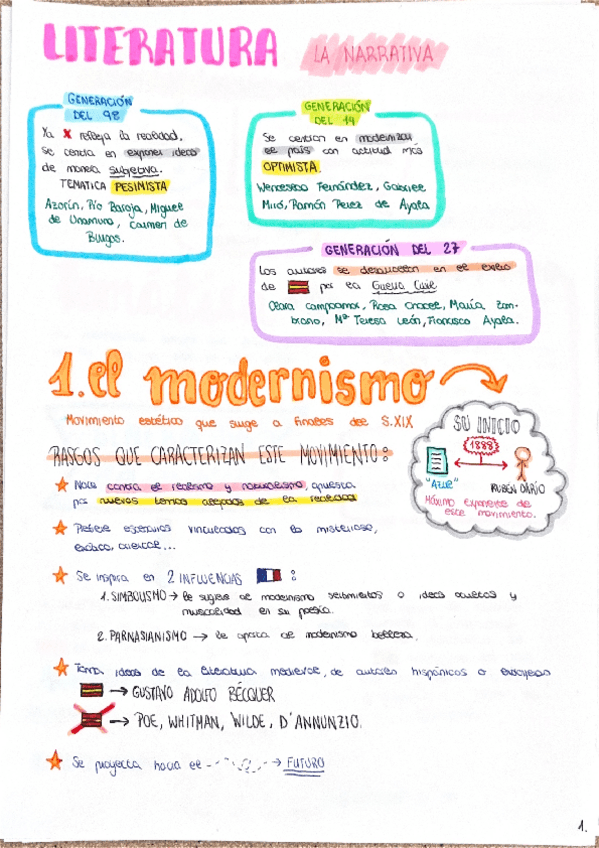 LITERATURA LA NARRATIVA
GENERACIÓN
DEL 98
Ya X refleja la realidad,
se centra en exponer ideas
de manera subjetiva.
TEMATICA PESIMISTA
Azorín, Pío Baroja, Miguel
de Unamuno, Carmen de
Burgos.
GENERACIÓN
DEL 14
Se centran en modernizar
el país con actitud más
OPTIMISTA.
Wenceslao Fernández, Gabriel
Miró, Ramón Pérez de Ayala
GENERACIÓN DEL 27
Los autores se desarrollan en el exilio
de por la Guerra Civil
Clara Campoamor, Rosa Chacel, María Zam-
brano, Mª Teresa León, Francisco Ayala.
1. el modernismo
Movimiento estético que surge a finales del S.XIX
RASGOS QUE CARACTERIZAN ESTE MOVIMIENTO:
SU INICIO
1888
"AZUL"
RUBÉN DARÍO
Máximo exponente de
este movimiento.
Nace contra el realismo y naturalismo, apuesta
por nuevos temas alejados de la realidad
Prefiere escenarios vinculados con lo misterioso,
exótico, oriental...
Se inspira en 2 INFLUENCIAS :
1. SIMBOLISMO → le sugiere al modernismo sentimientos o ideas ocultas y
musicalidad en su poesía.
2. PARNASIANISMO → le aporta al modernismo belleza.
Toma ideas de la literatura medieval, de autores hispánicos o europeos
→ GUSTAVO ADOLFO BÉCQUER
→ POE, WHITMAN, WILDE, D'ANNUNZIO.
Se proyecta hacia el → FUTURO
1.